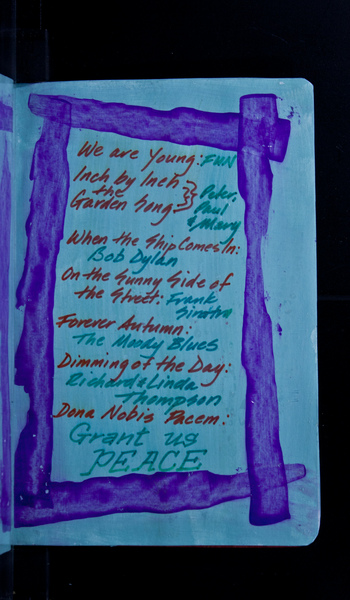 We are Young: FUN
Inch by Inch
the
Garden Song } Peter,
Paul
& Mary
When the Ship Comes In:
Bob Dylan
On the Sunny Side of
the Street: Frank
Sinatra
Forever Autumn:
The Moody Blues
Dimming of the Day:
Richard & Linda
Thompson
Dona Nobis Pacem:
Grant us
PEACE